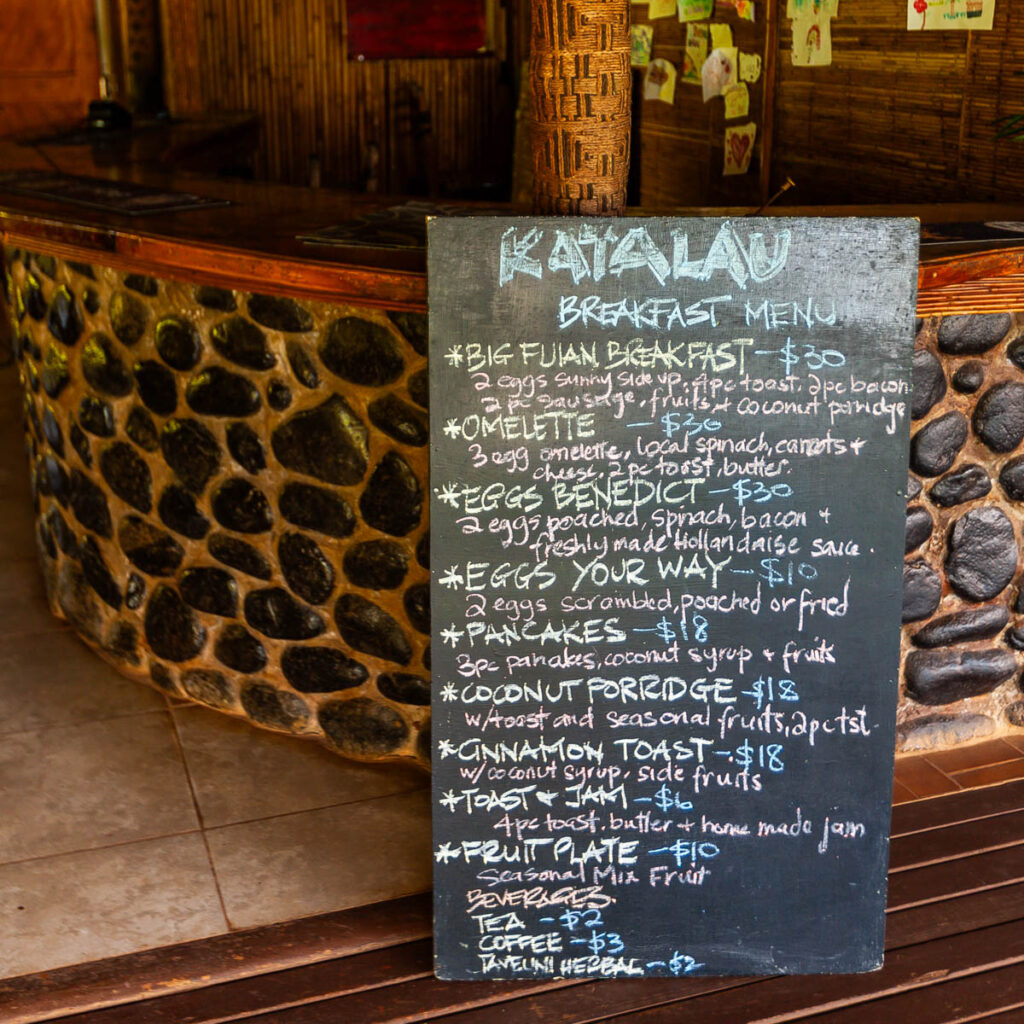 KATALAU
BREAKFAST MENU
*BIG FIJIAN BREAKFAST -$30
2 eggs sunny side up, 4pc toast, 2pc bacon
2 pc sausage, fruits + coconut porridge
*OMELETTE -$30
3 egg omelette, local spinach, carrots +
cheese, 2pc toast, butter.
*EGGS BENEDICT -$30
2 eggs poached, spinach, bacon +
freshly made Hollandaise sauce.
*EGGS YOUR WAY -$10
2 eggs scrambled, poached or fried
*PANCAKES -$18
3pc pancakes, coconut syrup + fruits
*COCONUT PORRIDGE -$18
w/toast and seasonal fruits, 2pc tst.
*CINNAMON TOAST -$18
w/coconut syrup, side fruits
*TOAST + JAM -$6
4pc toast, butter + home made jam
*FRUIT PLATE -$10
Seasonal Mix Fruit
BEVERAGES
TEA -$2
COFFEE -$3
TAVEUNI HERBAL -$2